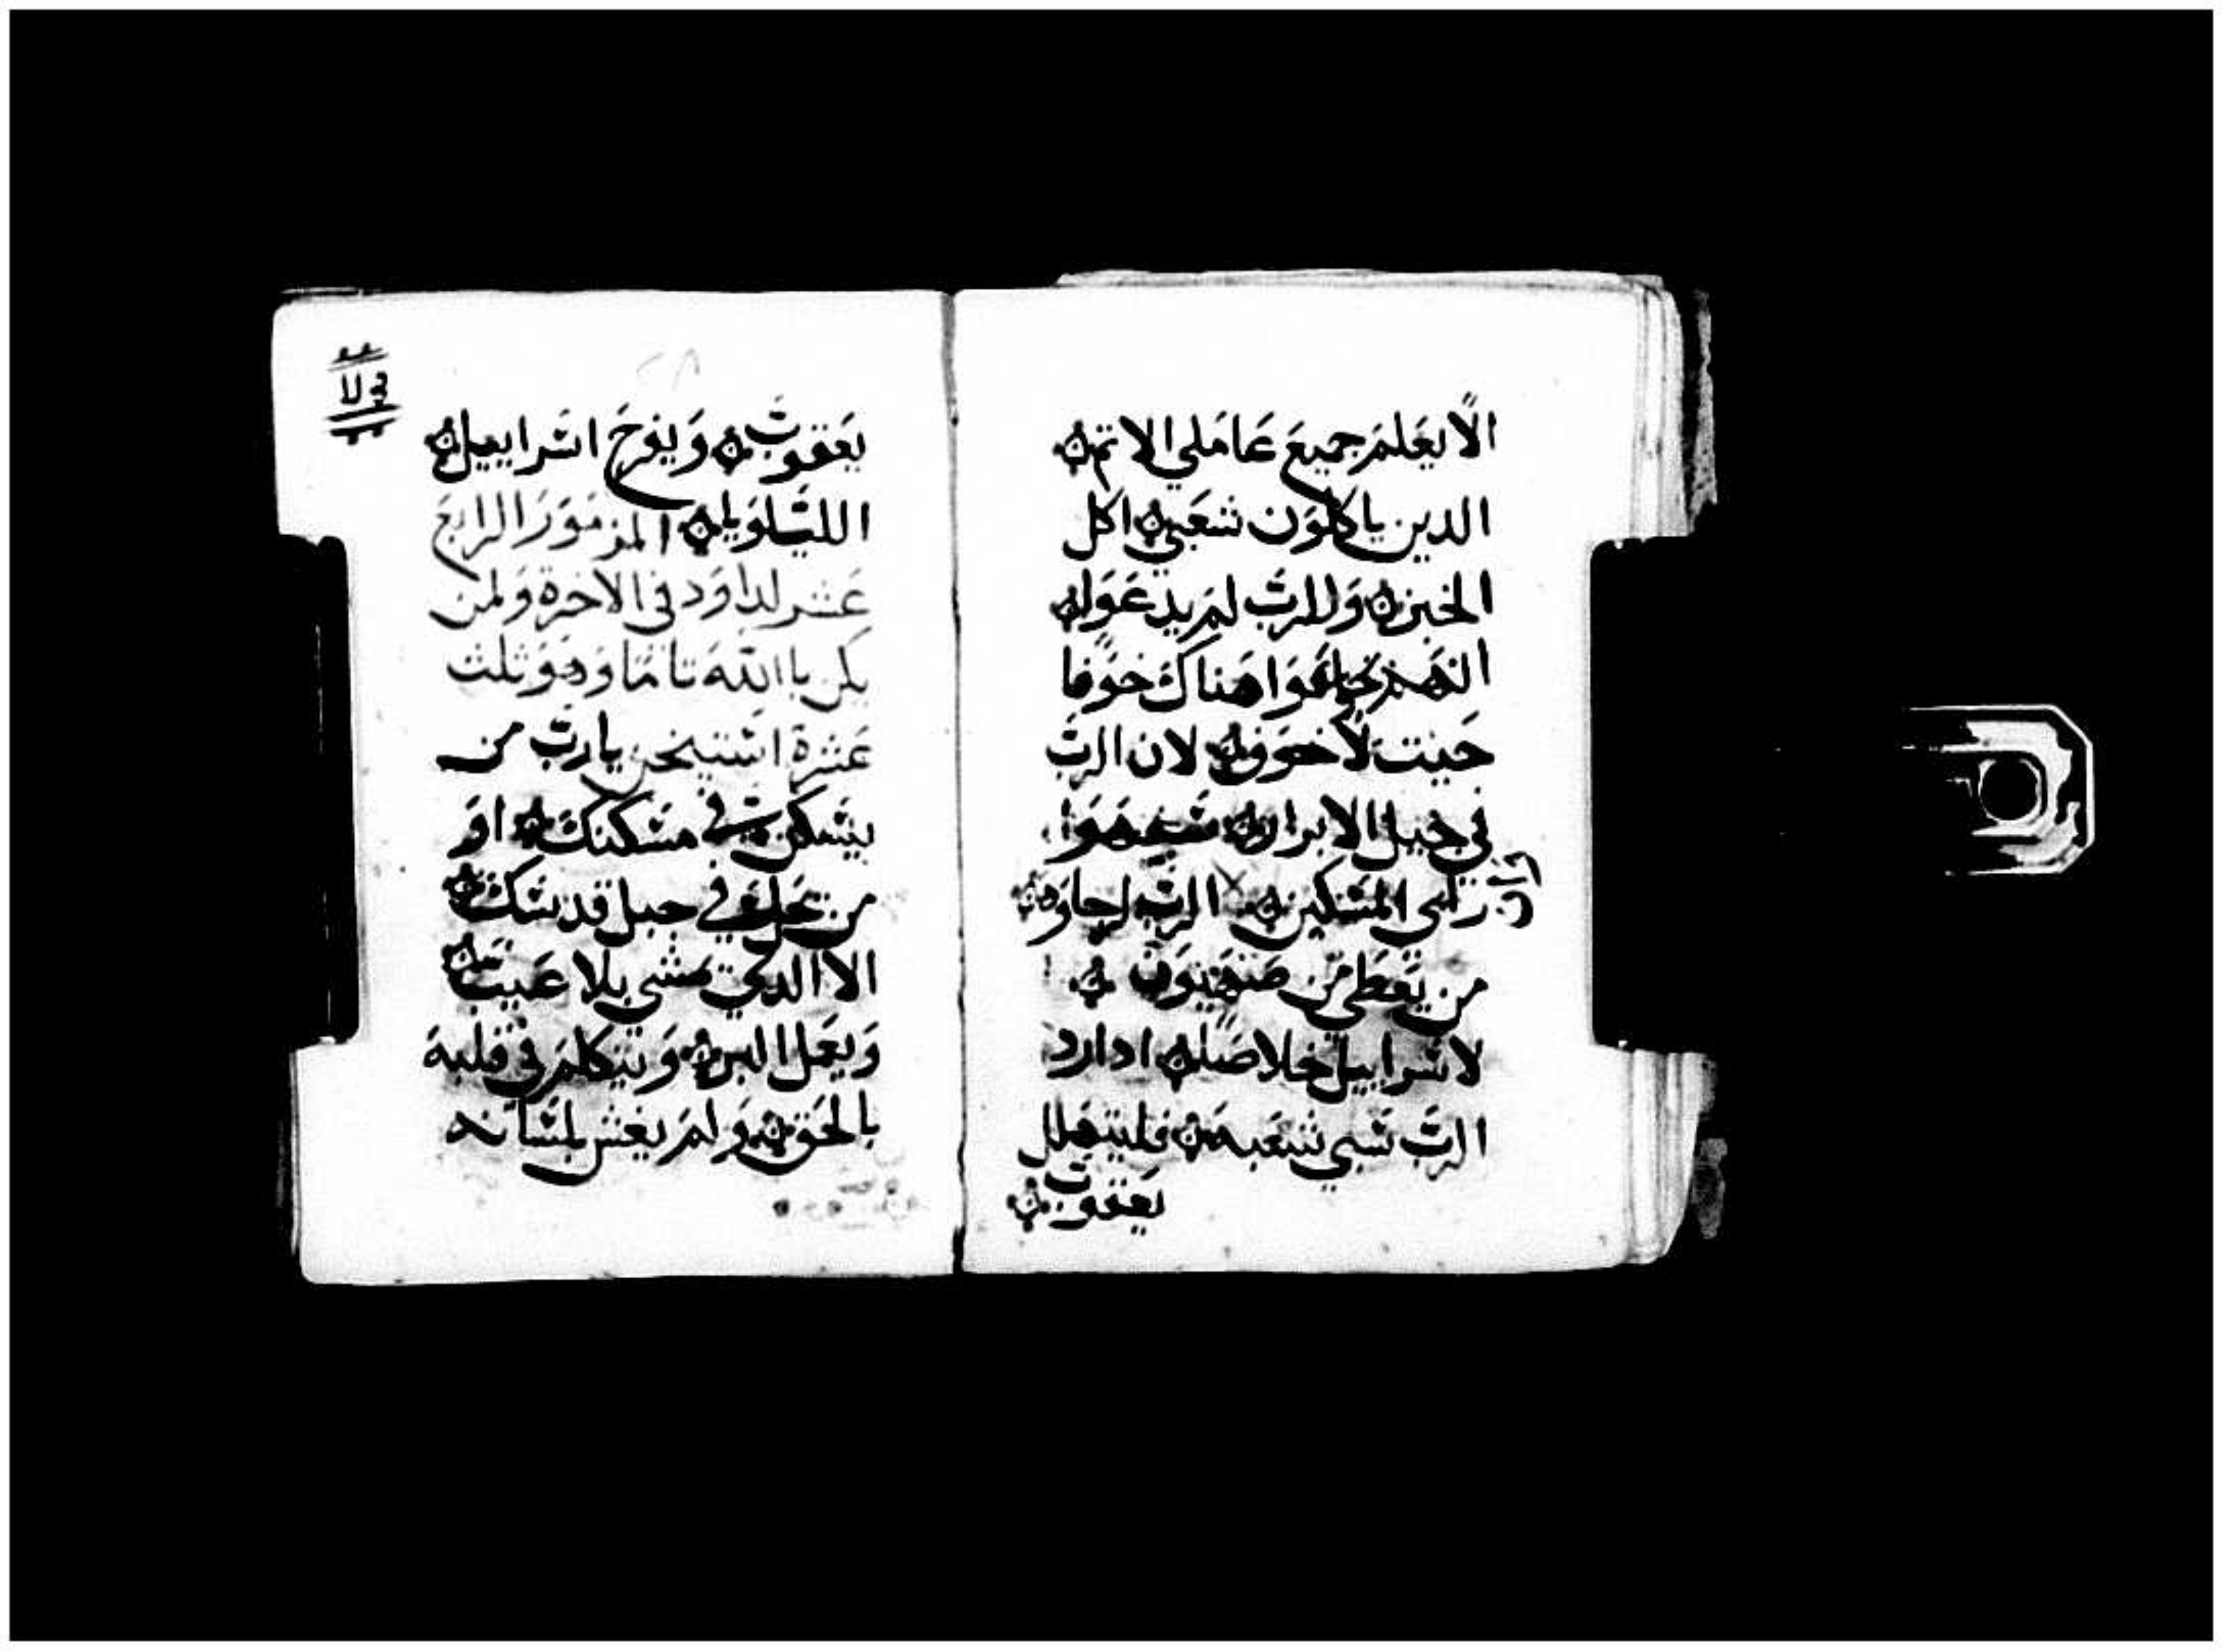 الا يعلم جميع عاملي الاتم
الدين ياكلون شعبي اكل
الخبز وللرب لم يدعوا
هناك خوفا
حيت لا خوف لان الرب
في جيل الابرار
راى المسكين الرب لجاوه
من يعطي من صهيون
لاسراييل خلاصا ادا رد
الرب سبي شعبه فليتهلل
يعقوب
يعقوب ويفرح اسراييل
الليلويا المزمور الرابع
عشر لداود في الاخرة ولمن
يكن بالله تاما وهو تلت
عشرة استيخن يا رب من
يسكن في مسكنك او
من يحل في جبل قدسك
الا الدي مشي بلا عيب
ويعمل البر ويتكلم في قلبه
بالحق ولم يغش بلسانه